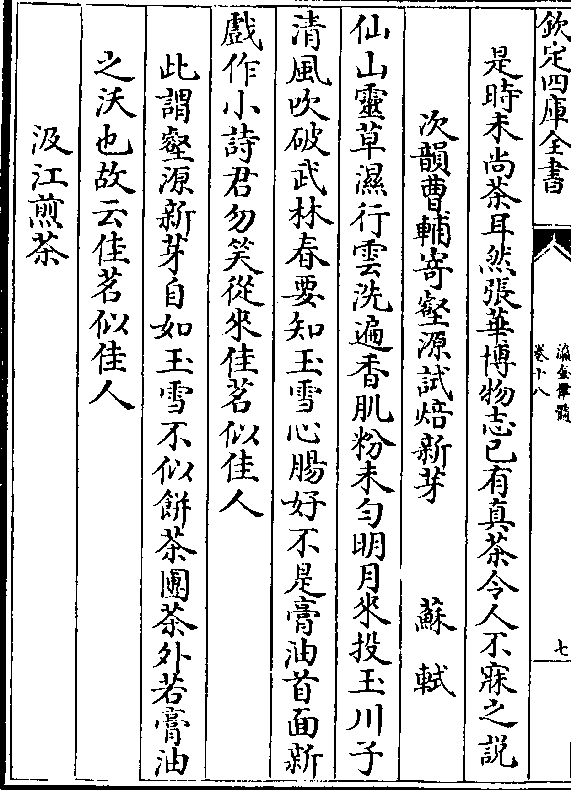 欽定四庫全書
瀛奎律髓
卷十八
七
是時未尚茶耳然張華博物志已有真茶令人不寐之説
次韻曹輔寄壑源試焙新芽 蘇軾
仙山靈草濕行雲洗遍香肌粉未勻明月來投玉川子
清風吹破武林春要知玉雪心腸好不是膏油首面新
戲作小詩君勿笑從來佳茗似佳人
此謂壑源新芽自如玉雪不似餅茶團茶外若膏油
之沃也故云佳茗似佳人
汲江煎茶